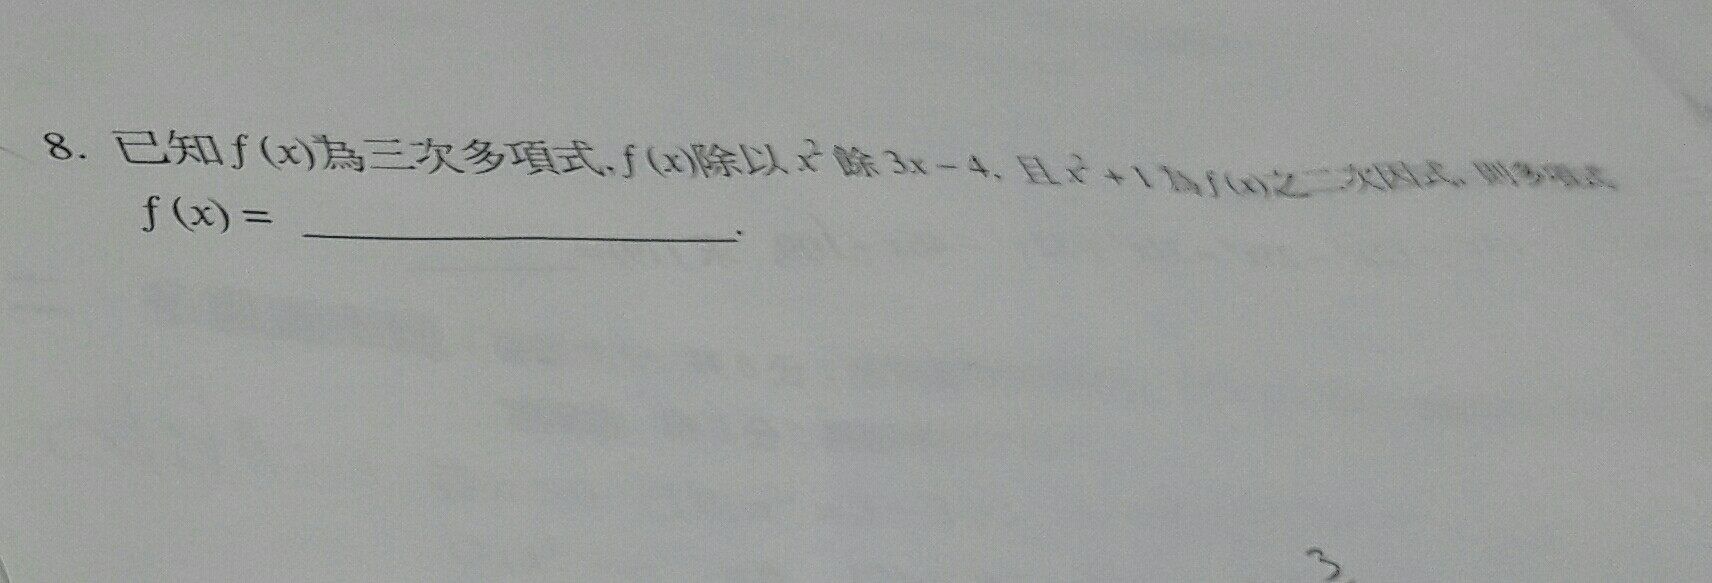 8. 已知f(x)為三次多項式,f(x)除以x²餘3x-4,且x²+1為f(x)之二次因式,則多項式
f(x)= ________.
3